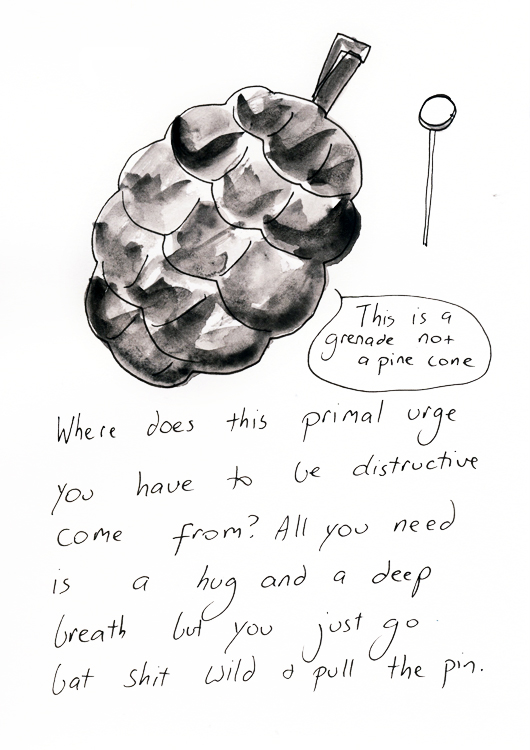 This is a
grenade not
a pine cone
Where does this primal urge
you have to be distructive
come from? All you need
is a hug and a deep
breath but you just go
bat shit wild & pull the pin.